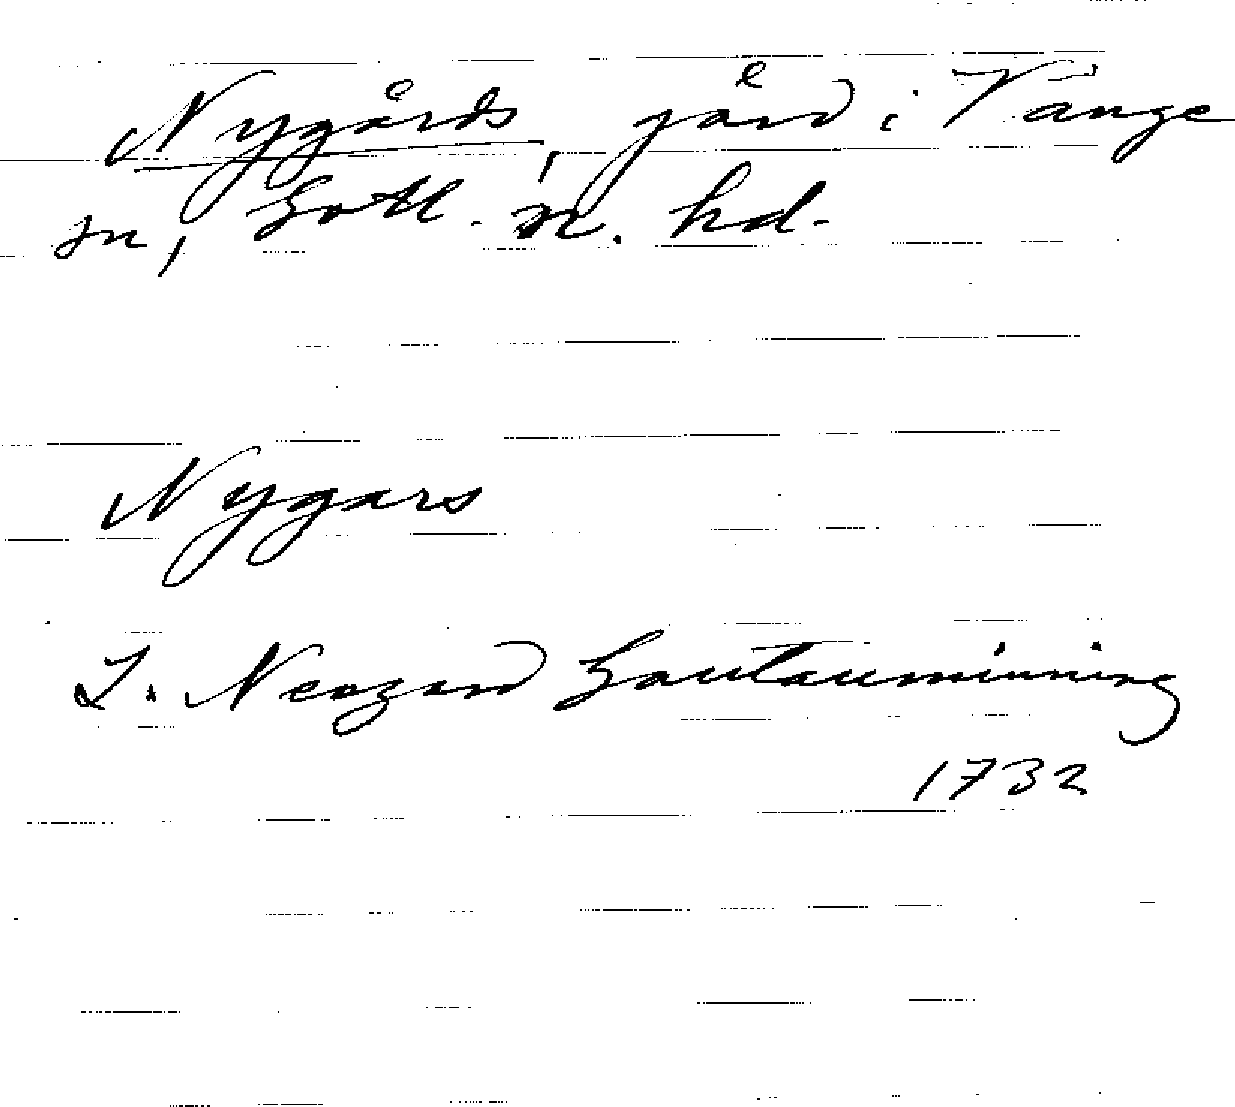 Nygårds, gård i Vänge
sn, Gotl. n. hd.
Nygars
L. Neogard Gautauminning
1732